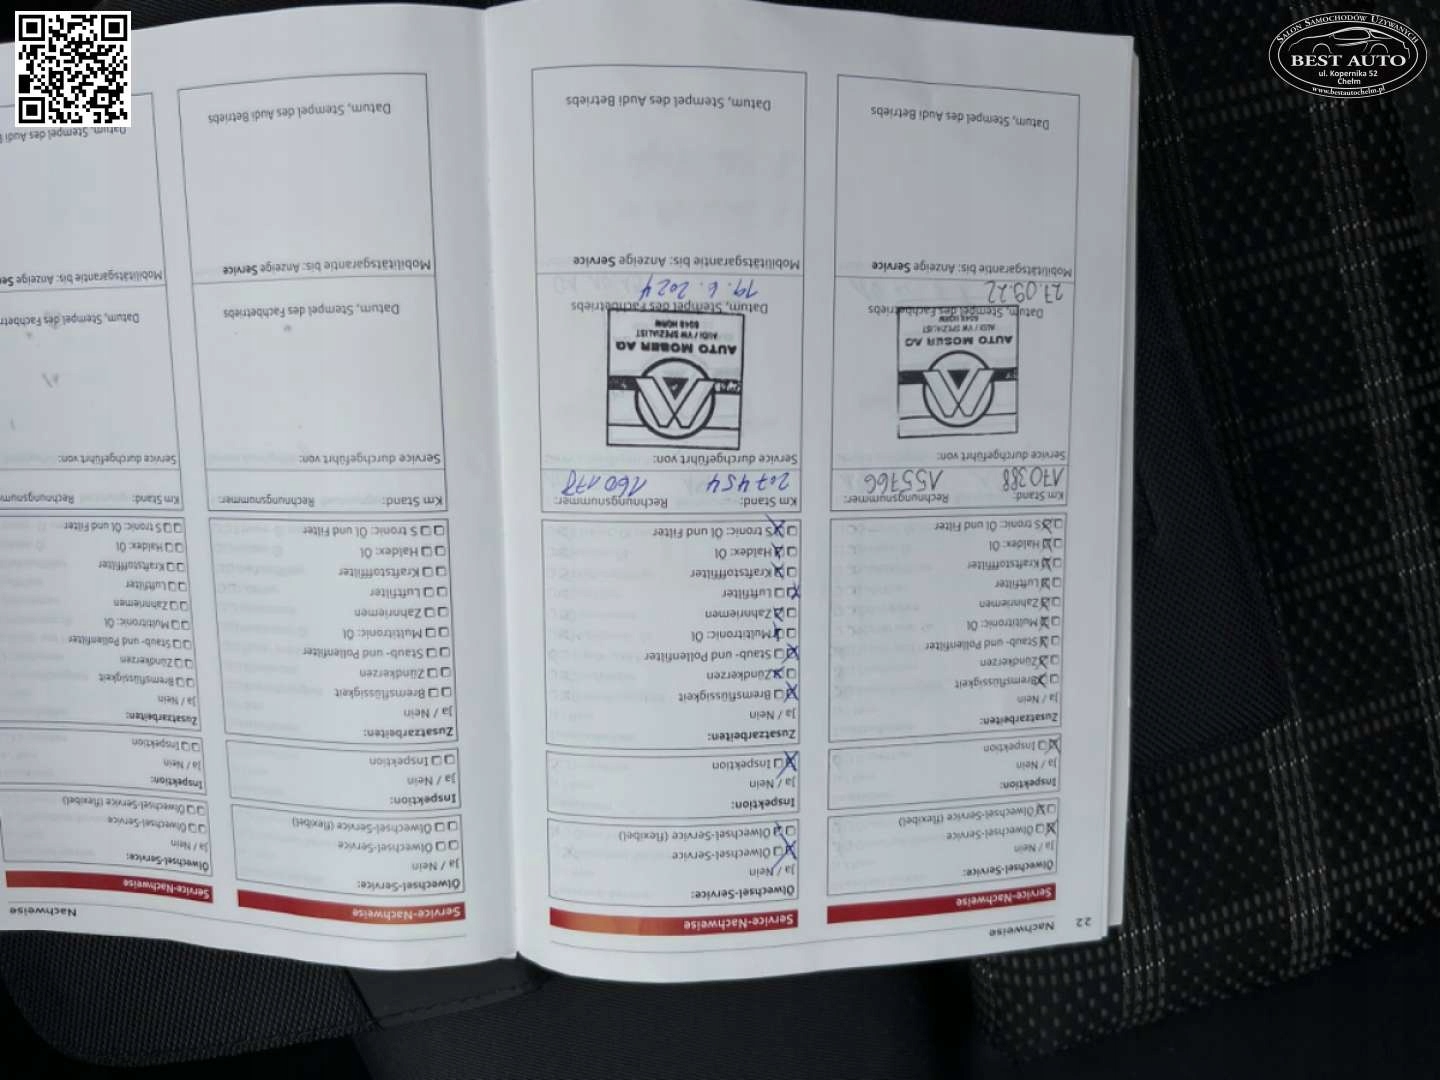 SALON SAMOCHODÓW UŻYWANYCH
BEST AUTO
ul. Kopernika 52
Chełm
www.bestautochelm.pl
22
Nachweise
Service-Nachweise
Ölwechsel-Service:
Ja / Nein
Ölwechsel-Service
Ölwechsel-Service (flexibel)
Inspektion:
Ja / Nein
Inspektion
Zusatzarbeiten:
Ja / Nein
Bremsflüssigkeit
Zündkerzen
Staub- und Pollenfilter
Multitronic: Öl
Zahnriemen
Luftfilter
Kraftstofffilter
Haldex: Öl
S tronic: Öl und Filter
Km Stand: 170388 Rechnungsnummer: 155766
Service durchgeführt von:
AUTO MOSER AG
AUDI / VW SPEZIALIST
6048 HORW
Datum, Stempel des Fachbetriebs
27.09.22
Mobilitätsgarantie bis: Anzeige Service
Datum, Stempel des Audi Betriebs
Service-Nachweise
Ölwechsel-Service:
Ja / Nein
Ölwechsel-Service
Ölwechsel-Service (flexibel)
Inspektion:
Ja / Nein
Inspektion
Zusatzarbeiten:
Ja / Nein
Bremsflüssigkeit
Zündkerzen
Staub- und Pollenfilter
Multitronic: Öl
Zahnriemen
Luftfilter
Kraftstofffilter
Haldex: Öl
S tronic: Öl und Filter
Km Stand: 207454 Rechnungsnummer: 160178
Service durchgeführt von:
AUTO MOSER AG
AUDI / VW SPEZIALIST
6048 HORW
Datum, Stempel des Fachbetriebs
19.6.2024
Mobilitätsgarantie bis: Anzeige Service
Datum, Stempel des Audi Betriebs
Service-Nachweise
Ölwechsel-Service:
Ja / Nein
Ölwechsel-Service
Ölwechsel-Service (flexibel)
Inspektion:
Ja / Nein
Inspektion
Zusatzarbeiten:
Ja / Nein
Bremsflüssigkeit
Zündkerzen
Staub- und Pollenfilter
Multitronic: Öl
Zahnriemen
Luftfilter
Kraftstofffilter
Haldex: Öl
S tronic: Öl und Filter
Km Stand: Rechnungsnummer:
Service durchgeführt von:
Datum, Stempel des Fachbetriebs
Mobilitätsgarantie bis: Anzeige Service
Datum, Stempel des Audi Betriebs
Nachweise
Service-Nachweise
Ölwechsel-Service:
Ja / Nein
Ölwechsel-Service
Ölwechsel-Service (flexibel)
Inspektion:
Ja / Nein
Inspektion
Zusatzarbeiten:
Ja / Nein
Bremsflüssigkeit
Zündkerzen
Staub- und Pollenfilter
Multitronic: Öl
Zahnriemen
Luftfilter
Kraftstofffilter
Haldex: Öl
S tronic: Öl und Filter
Km Stand: Rechnungsnumm
Service durchgeführt von:
Datum, Stempel des Fachbetri
Mobilitätsgarantie bis: Anzeige Se
Datum, Stempel des Audi B